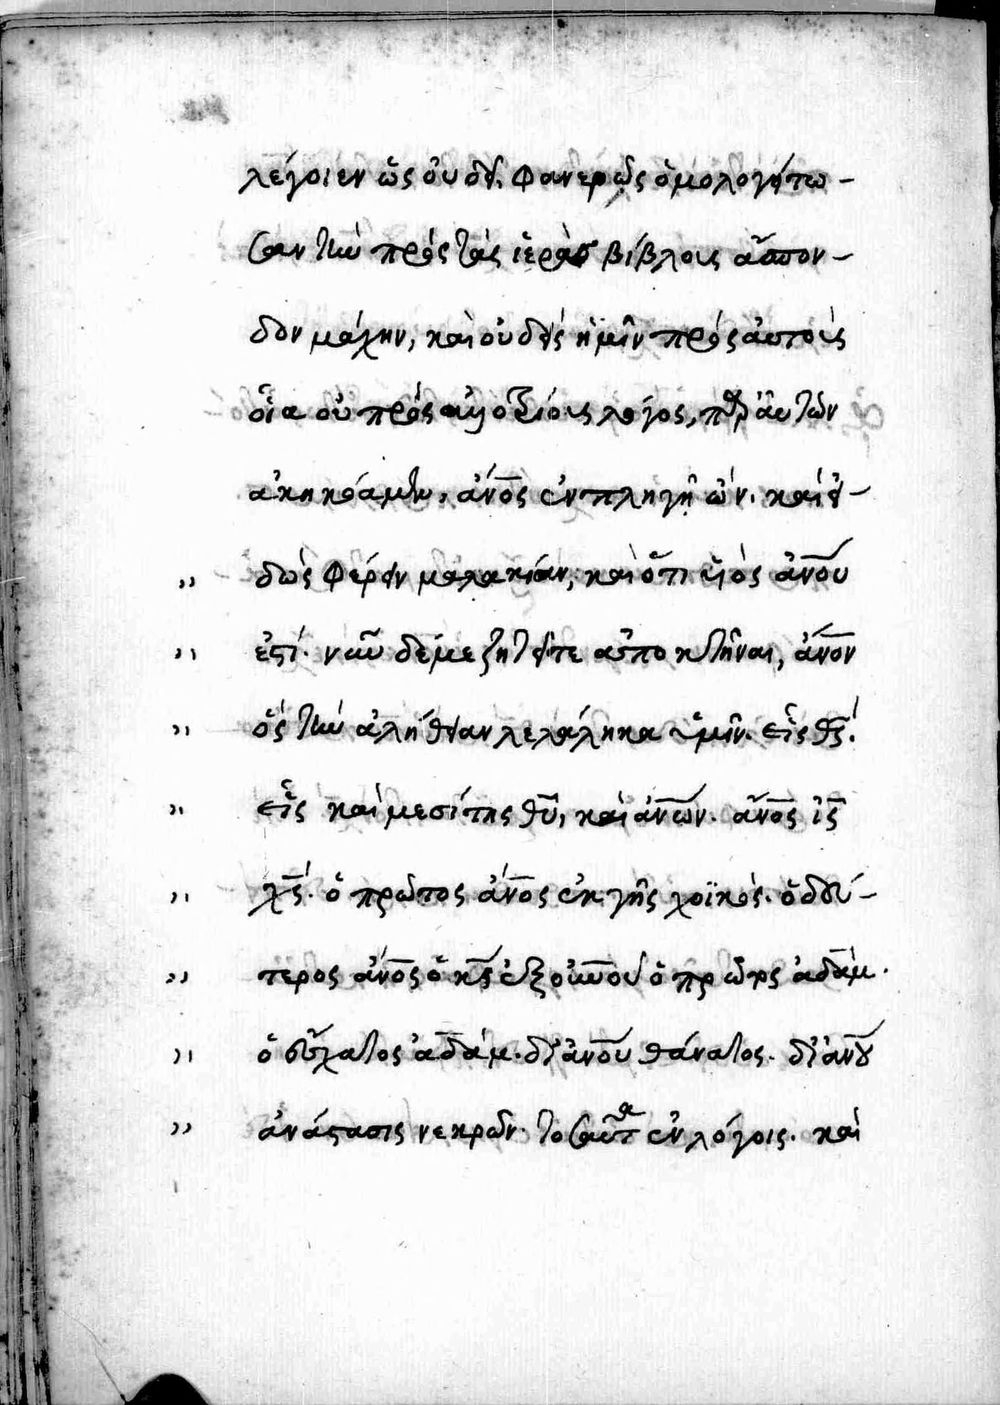 λέγοιεν ὡς οὐδέ, φανερῶς ὁμολογείτω-
σαν τὴν πρὸς τὰς ἱερὰς βίβλους ἄσπον-
δον μάχην, καὶ οὐδεὶς ἡμῖν πρὸς αὐτοὺς
οἷα οὐ πρὸς λόγος, παρ αὐτῶν
ἀκηκόαμεν, ἀνος ἐν πληγῇ ὤν. καὶ εἰ-
„ δὼς φέρειν μαλακίαν, καὶ ὅτι υἱὸς ἀνου
„ ἐστί. νῦν δέ με ζητεῖτε ἀποκτεῖναι, ἀνον
„ ὃς τὴν ἀλήθειαν λελάληκα ὑμῖν. εἷς θς.
„ εἷς καὶ μεσίτης θυ, καὶ ἀνων. ἀνος ις
„ χς. ὁ πρῶτος ἀνος ἐκ γῆς χοϊκός. ὁ δεύ-
„ τερος ἀνος ὁ κς ἐξ οὐνου ὁ πρῶτος ἀδάμ.
„ ὁ ἔσχατος ἀδάμ. δι ἀνου θάνατος. δι ἀνου
„ ἀνάστασις νεκρῶν. τοσαῦτα ἐν λόγοις. καὶ